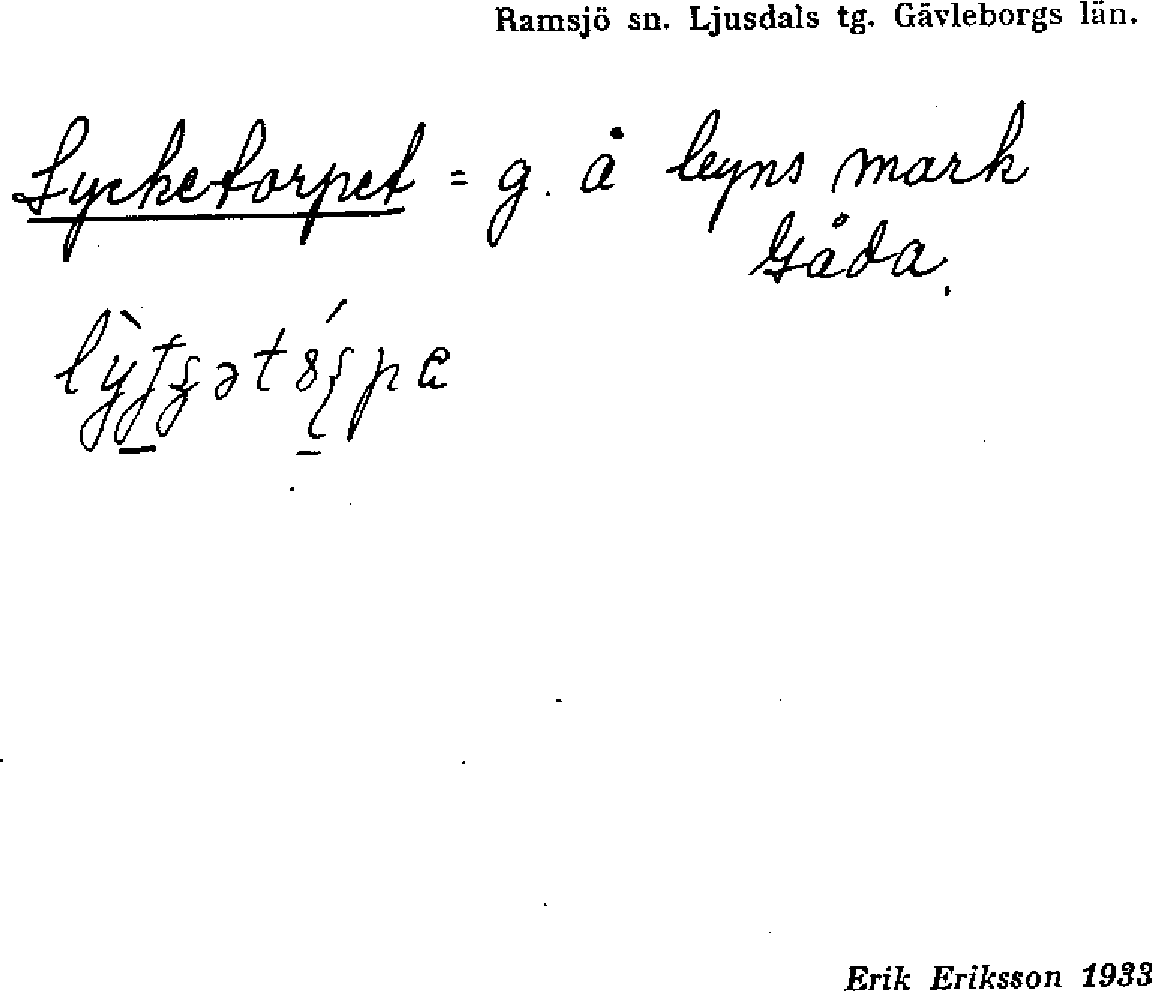 Ramsjö sn. Ljusdals tg. Gävleborgs län.
Lycketorpet = g. å leyns mark
Gåda.
Erik Eriksson 1933